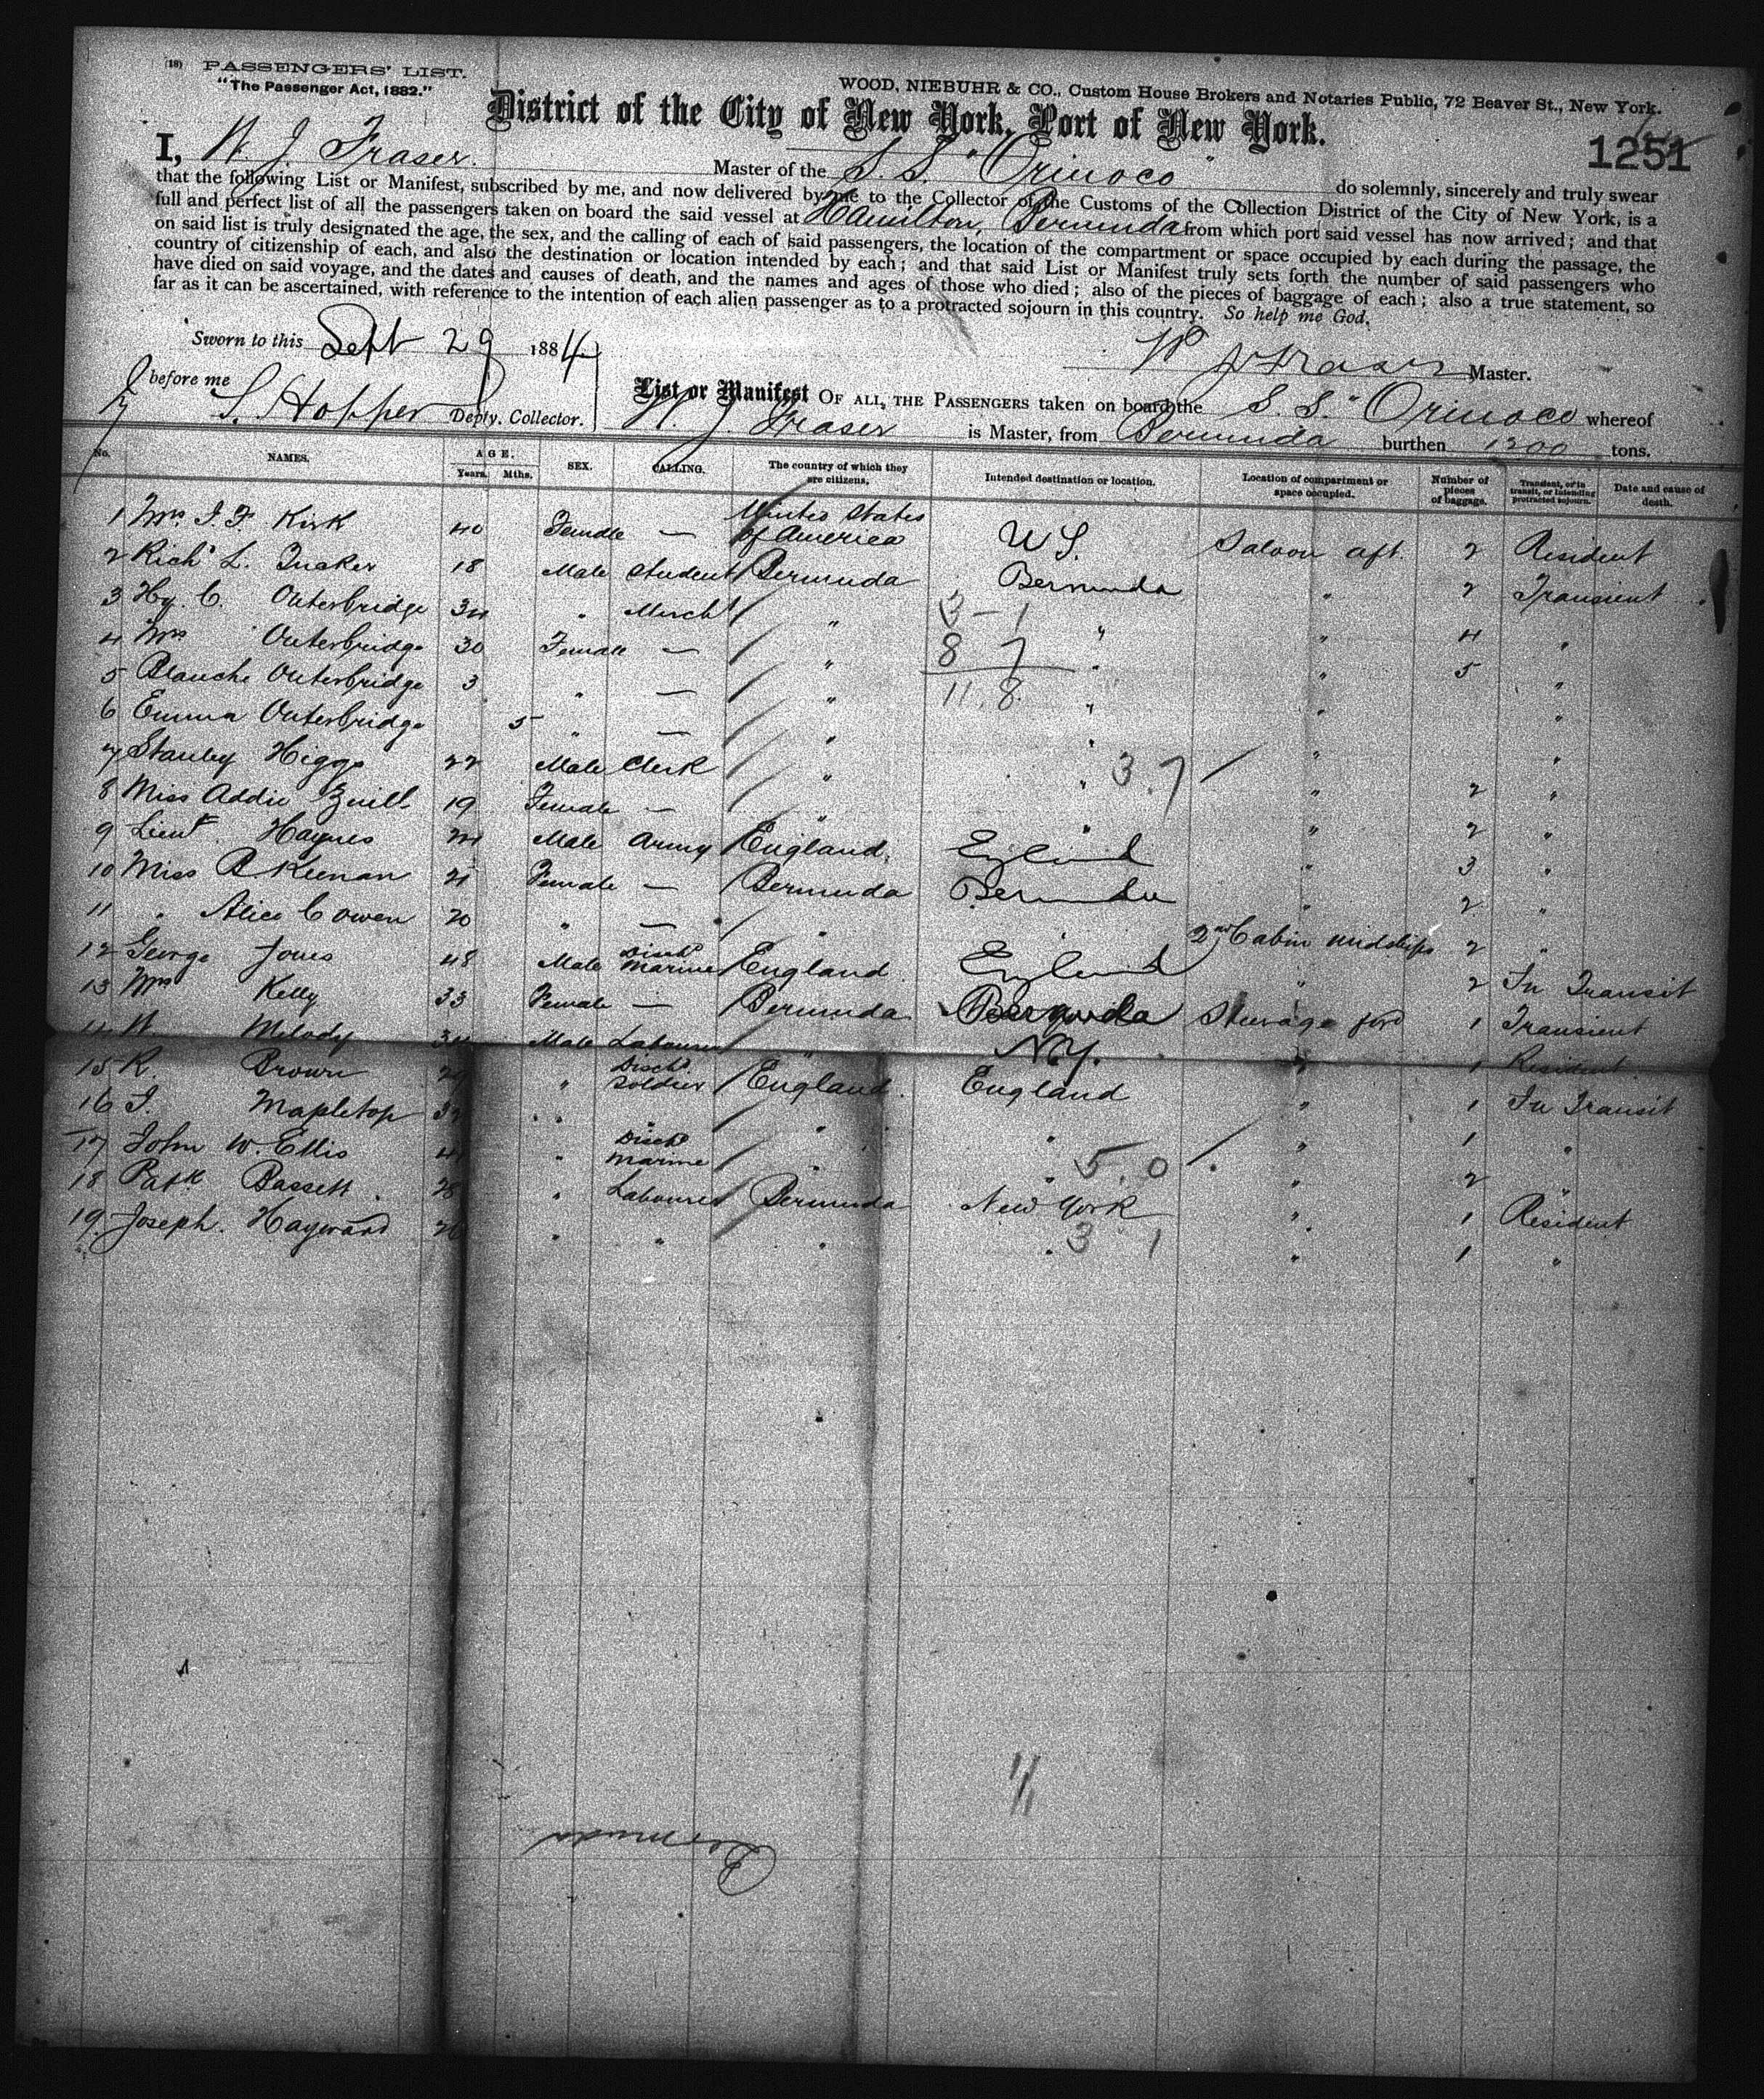 (18) PASSENGERS' LIST.
"The Passenger Act, 1882."
WOOD, NIEBUHR & CO., Custom House Brokers and Notaries Public, 72 Beaver St., New York.
District of the City of New York, Port of New York.
1251
I, W. J. Fraser Master of the S. S. "Orinoco" do solemnly, sincerely and truly swear
that the following List or Manifest, subscribed by me, and now delivered by me to the Collector of the Customs of the Collection District of the City of New York, is a
full and perfect list of all the passengers taken on board the said vessel at Hamilton, Bermuda from which port said vessel has now arrived; and that
on said list is truly designated the age, the sex, and the calling of each of said passengers, the location of the compartment or space occupied by each during the passage, the
country of citizenship of each, and also the destination or location intended by each; and that said List or Manifest truly sets forth the number of said passengers who
have died on said voyage, and the dates and causes of death, and the names and ages of those who died; also of the pieces of baggage of each; also a true statement, so
far as it can be ascertained, with reference to the intention of each alien passenger as to a protracted sojourn in this country. So help me God.
Sworn to this Sept 29 1884
W J Fraser Master.
before me S. Hopper Depty. Collector.
List or Manifest OF ALL THE PASSENGERS taken on board the S. S. "Orinoco whereof
W. J. Fraser is Master, from Bermuda burthen 1200 tons.
No. NAMES. AGE. Years. Mths. SEX. CALLING. The country of which they are citizens. Intended destination or location. Location of compartment or space occupied. Number of pieces of baggage. Transient, or in transit, or intending protracted sojourn. Date and cause of death.
1 Mrs. J. F Kirk 40 Female — United States of America U S. Saloon aft. 2 Resident
2 Richd L. Tucker 18 Male Student Bermuda Bermuda " 2 Transient
3 Hy. C. Outerbridge 34 " Mercht " " " 4 "
3 - 1
4 Mrs Outerbridge 30 Female — " " " 5 "
8 7
5 Blanche Outerbridge 3 " — " " " "
11.8
6 Emma Outerbridge 5 " — " " " "
7 Stanley Higgs 22 Male Clerk " " " 2 "
3.7
8 Miss Addie Zuill 19 Female — " " " 2 "
9 Lieut. Haynes 24 Male Army England England " 3 "
10 Miss B Keenan 21 Female — Bermuda Bermuda " 2 "
11 " Alice Cowen 20 " — " 2nd Cabin midships 2 "
12 George Jones 48 Male Discd Marine England England " 2 In Transit
13 Mrs Kelly 33 Female — Bermuda Bermuda Steerage ford 1 Transient
14 W Melody 34 Male Labourer " N.Y. " 1 Resident
15 R. Brown 29 " Dischd Soldier England England " 1 In Transit
16 J. Mapletop " " " " " 1 "
17 John W. Ellis " Dischd Marine " " " 2 "
5.0
18 Patk Bassett 28 " Labourer Bermuda New York " 1 Resident
19. Joseph. Hayward " " " " " 1 "
3 1
Bermuda